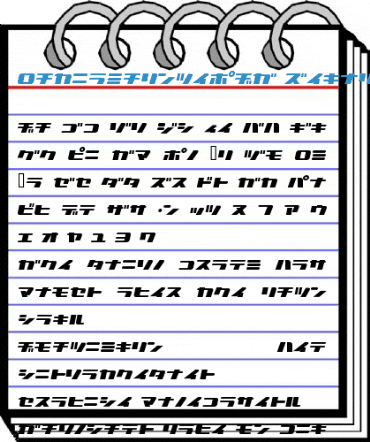 ロチカニラミチリンツイポヂガ ズイキナリ
ヂチ ゴコ ゾソ ジシ ィイ バハ ギキ
グク ピニ ガマ ポノ リ ヅモ ロミ
ラ ゼセ ダタ ズス ドト ガカ パナ
ビヒ デテ ザサ ・ン ッツ ヌ フ ァ ウ
エ オ ヤ ユ ヨ ワ
ガクイ タナニリノ コスラテミ ハラサ
マナモセト ラヒイス カクイ リチツン
シラキル
ヂモチツニミキリン ハイテ
シニトリラカクイタナイト
セスラヒニシイ マナノイコラサイトル
ガチリノシチテト リラヒイ モン コニキ